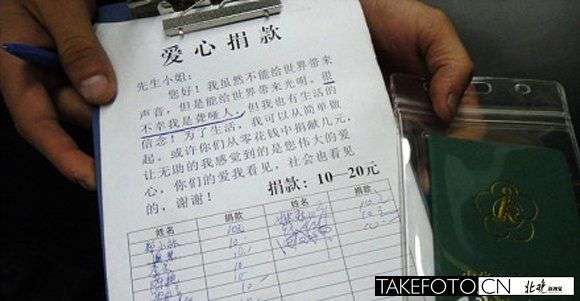 爱心捐款
先生小姐:
您好！我虽然不能给世界带来
声音，但是能给世界带来光明，很
不辛我是聋哑人，但我也有生活的
信念！为了生活，我可以从简单做
起，或许你们从零花钱中捐献几元，
让无助的我感觉到的是您伟大的爱
心，你们的爱我看见，社会也看见
的，谢谢！
捐款：10—20元
姓名 捐款 姓名 捐款
TAKEFOTO.CN 北晚新视觉